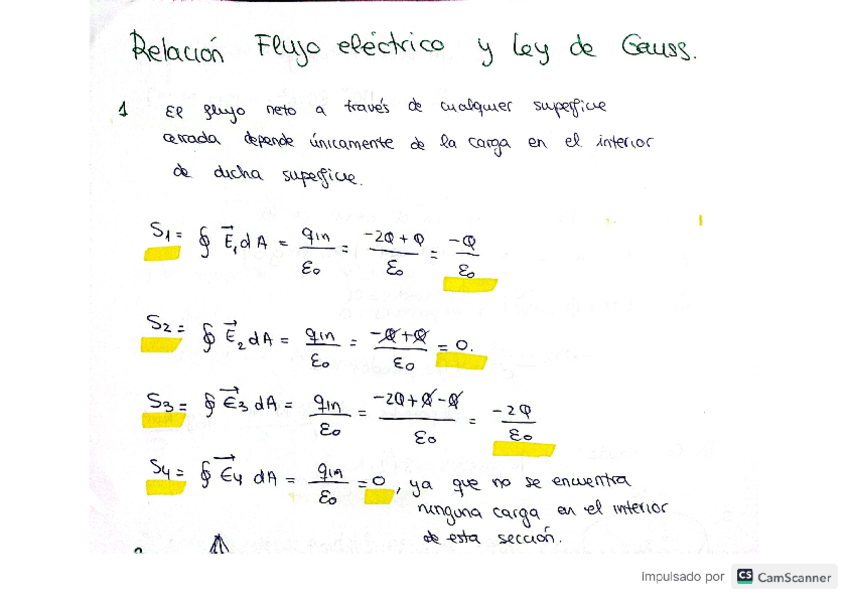 Relación Flujo eléctrico y Ley de Gauss.
1 El flujo neto a través de cualquier superficie
cerrada depende únicamente de la carga en el interior
de dicha superficie.
S1 = ∮ E⃗1 dA = qin/ε0 = -2Q + Q/ε0 = -Q/ε0
S2 = ∮ E⃗2 dA = qin/ε0 = -Q+Q/ε0 = 0.
S3 = ∮ E⃗3 dA = qin/ε0 = -2Q+Q-Q/ε0 = -2Q/ε0
S4 = ∮ E⃗4 dA = qin/ε0 = 0, ya que no se encuentra
ninguna carga en el interior
de esta sección.
Impulsado por CS CamScanner